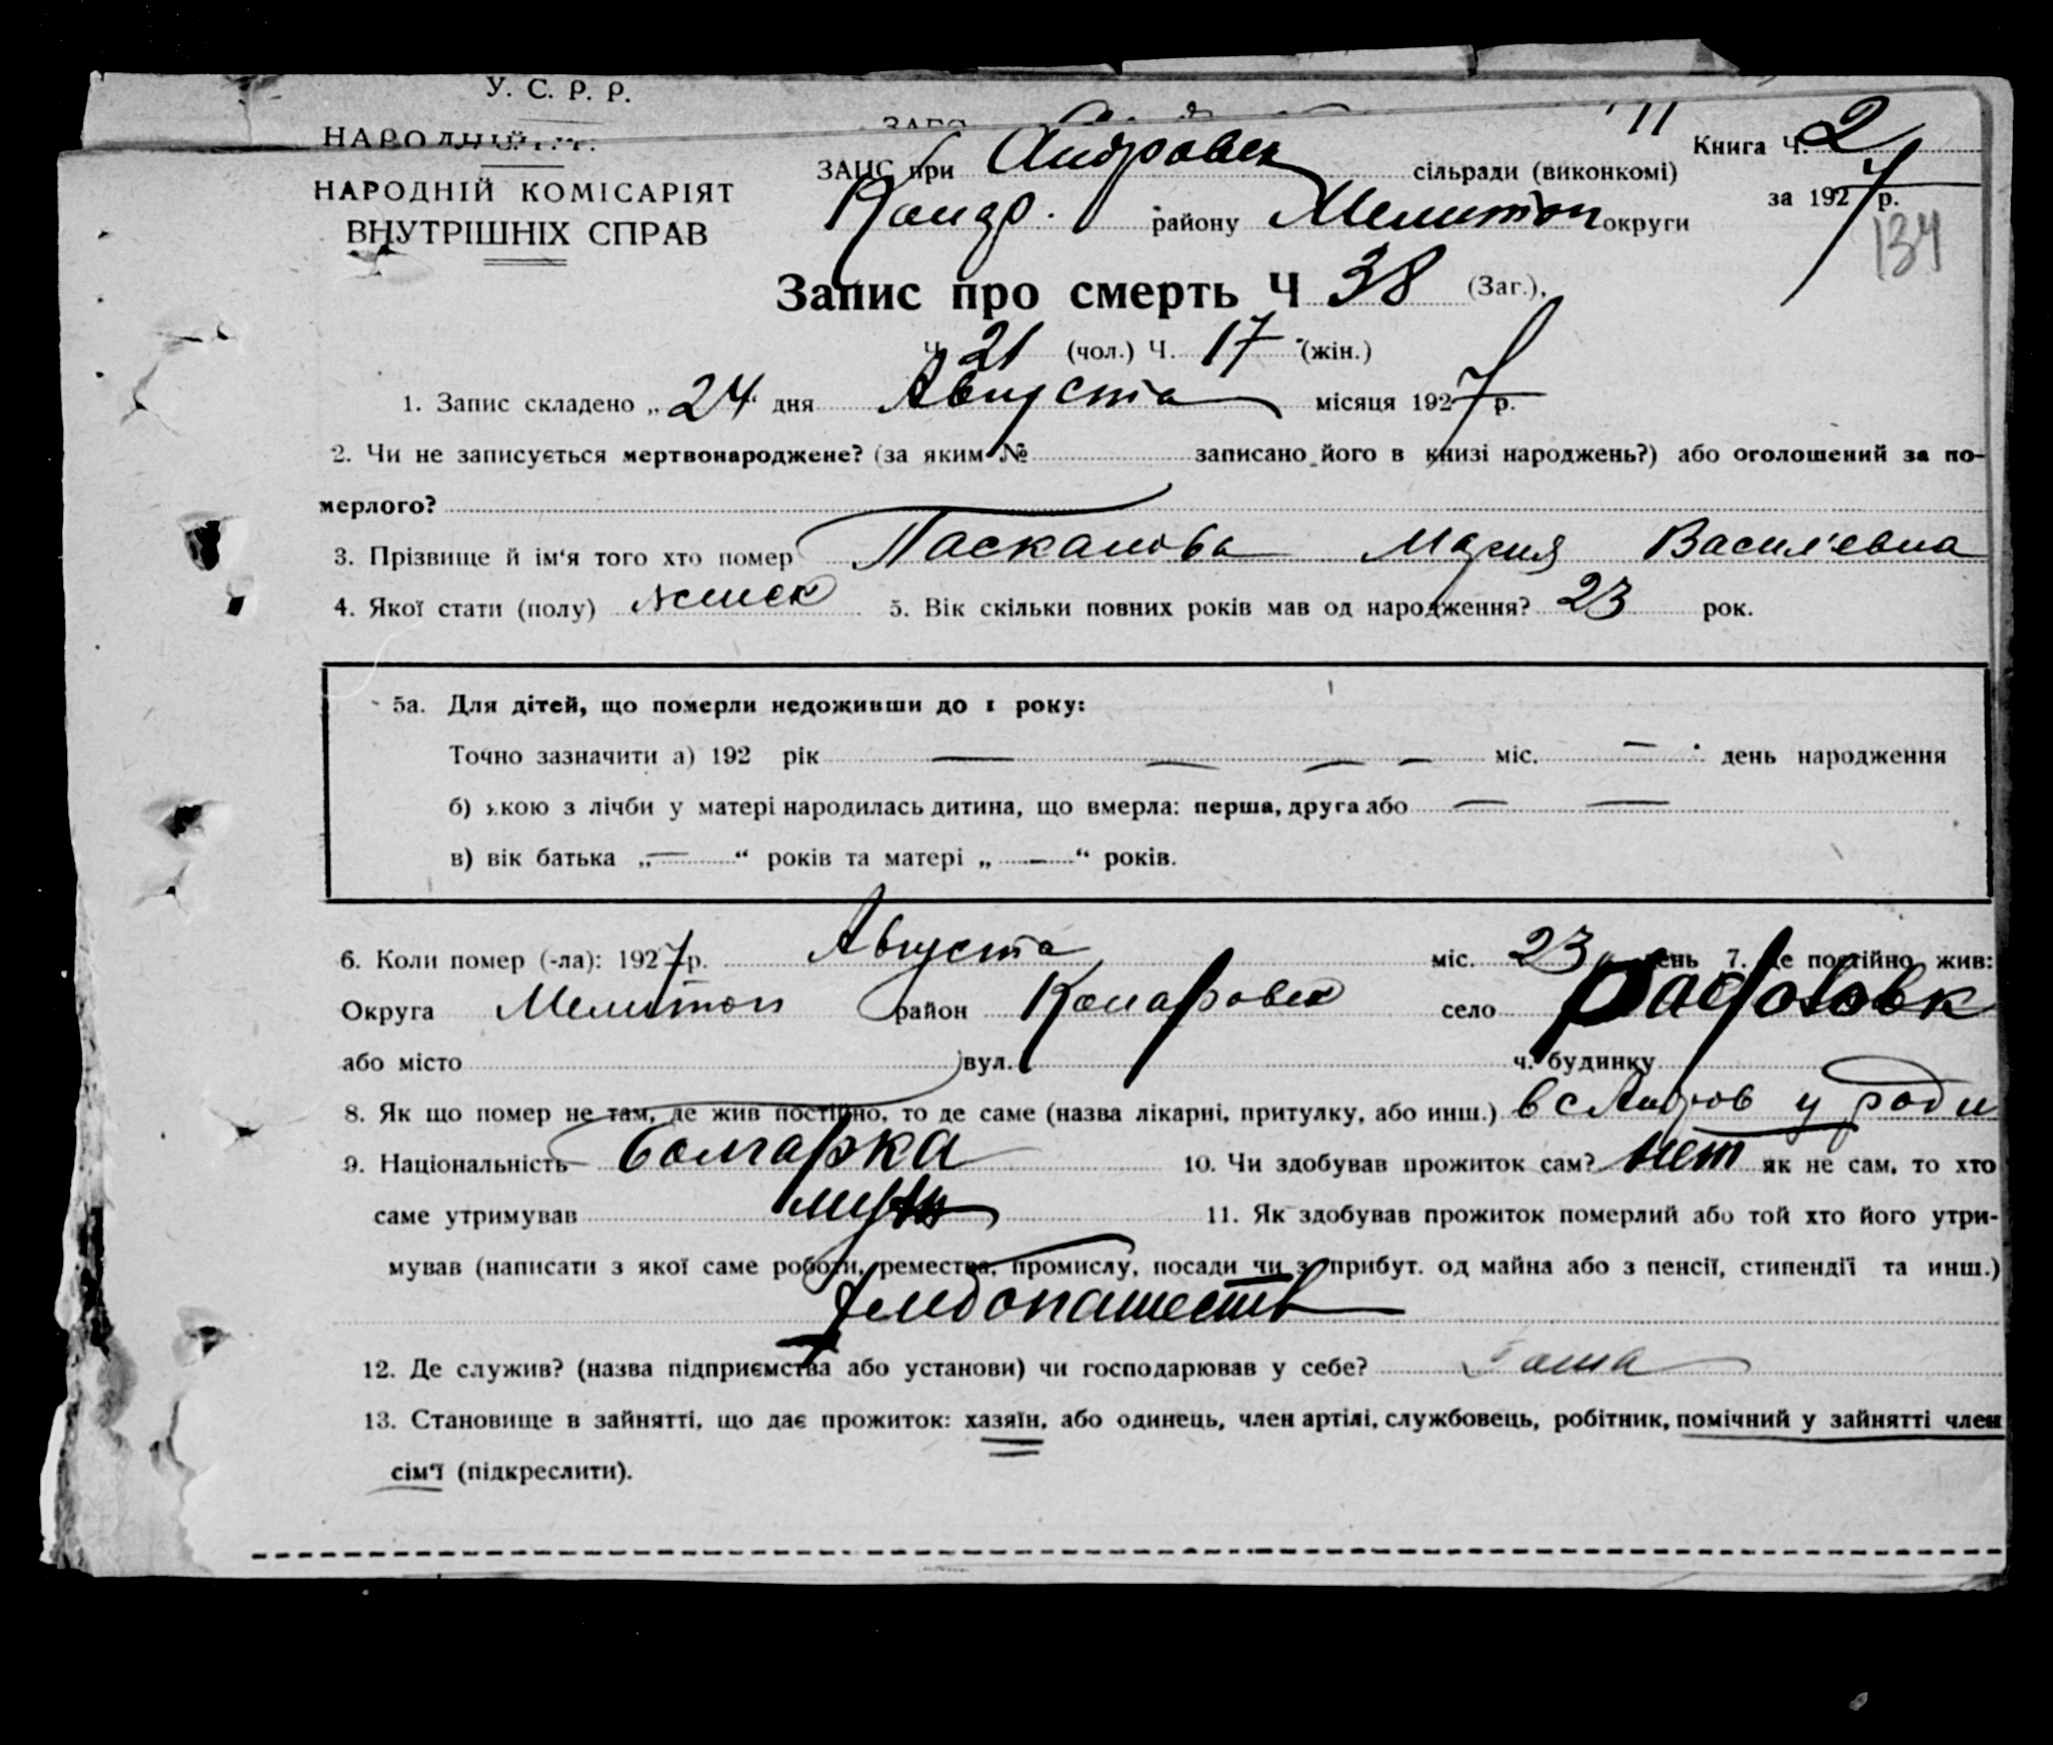 У. С. Р. Р.
НАРОДНІЙ КОМІСАРІЯТ
ВНУТРІШНІХ СПРАВ
ЗАГС при Андровск сільради (виконкомі)
району Мелитоп округи
Книга Ч. 2
за 1927 р.
134
Запис про смерть Ч 38 (Заг.),
Ч 21 (чол.) Ч. 17 (жін.)
1. Запис складено „24“ дня Августа місяця 1927 р.
2. Чи не записується мертвонароджене? (за яким № записано його в книзі народжень?) або оголошений за по-
мерлого?
3. Прізвище й ім‘я того хто помер Паскалова Мария Васил‘евна
4. Якої стати (полу) женск 5. Вік скільки повних років мав од народження? 23 рок.
5а. Для дітей, що померли недоживши до 1 року:
Точно зазначити а) 192 рік — — — — міс. — день народження
б) якою з лічби у матері народилась дитина, що вмерла: перша, друга або — —
в) вік батька „—“ років та матері „—“ років.
6. Коли помер (-ла): 1927 р. Августа міс. 23 день 7. Де постійно жив:
Округа Мелитоп район село
або місто вул. ч. будинку
8. Як що помер не там, де жив постійно, то де саме (назва лікарні, притулку, або инш.) в с Андров у роди
9. Національність Болгарка 10. Чи здобував прожиток сам? нет як не сам, то хто
саме утримував муж 11. Як здобував прожиток померлий або той хто його утри-
мував (написати з якої саме роботи, ремества, промислу, посади чи з прибут. од майна або з пенсії, стипендії та инш.)
хлебопашеств
12. Де служив? (назва підприємства або установи) чи господарював у себе?
13. Становище в зайнятті, що дає прожиток: хазяїн, або одинець, член артілі, службовець, робітник, помічний у зайнятті член
сім‘ї (підкреслити).